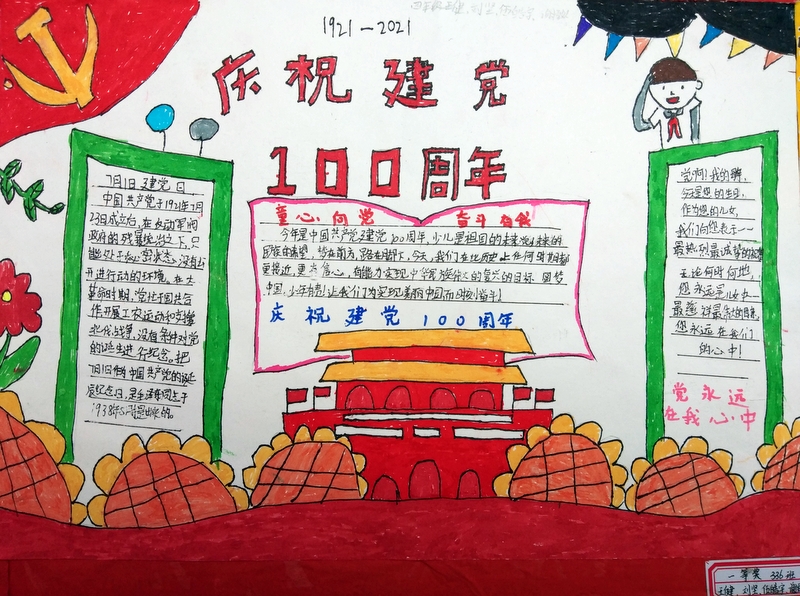 1921-2021
庆祝建党
100周年
7月1日建党日
中国共产党于1921年7月
23日成立后，在反动军阀
政府的残暴统治之下，只
能处于秘密状态，没有公
开进行活动的环境。在大
革命时期，党忙于国共合
作开展工农运动和支援
北伐战争，没有条件对党
的诞生进行纪念。把
7月1日作为中国共产党的诞
辰纪念日，是毛泽东同志于
1938年5月提出来的。
童心向党 奋斗有我
今年是中国共产党建党100周年，少儿是祖国的未来
民族的希望，
更接近，更有信心，有能力实现中华民族伟大的复兴的目标 圆梦
中国，少年有责！让我们为实现美丽中国而时刻奋斗！
庆祝建党100周年
党啊！我的妈，
今天是您的生日，
作为您的儿女，
我们向您表示——
最热烈最诚挚的
无论何时何地，
您永远是儿女中——
您永远在我们
的心中！
党永远
在我心中
一等奖 336班